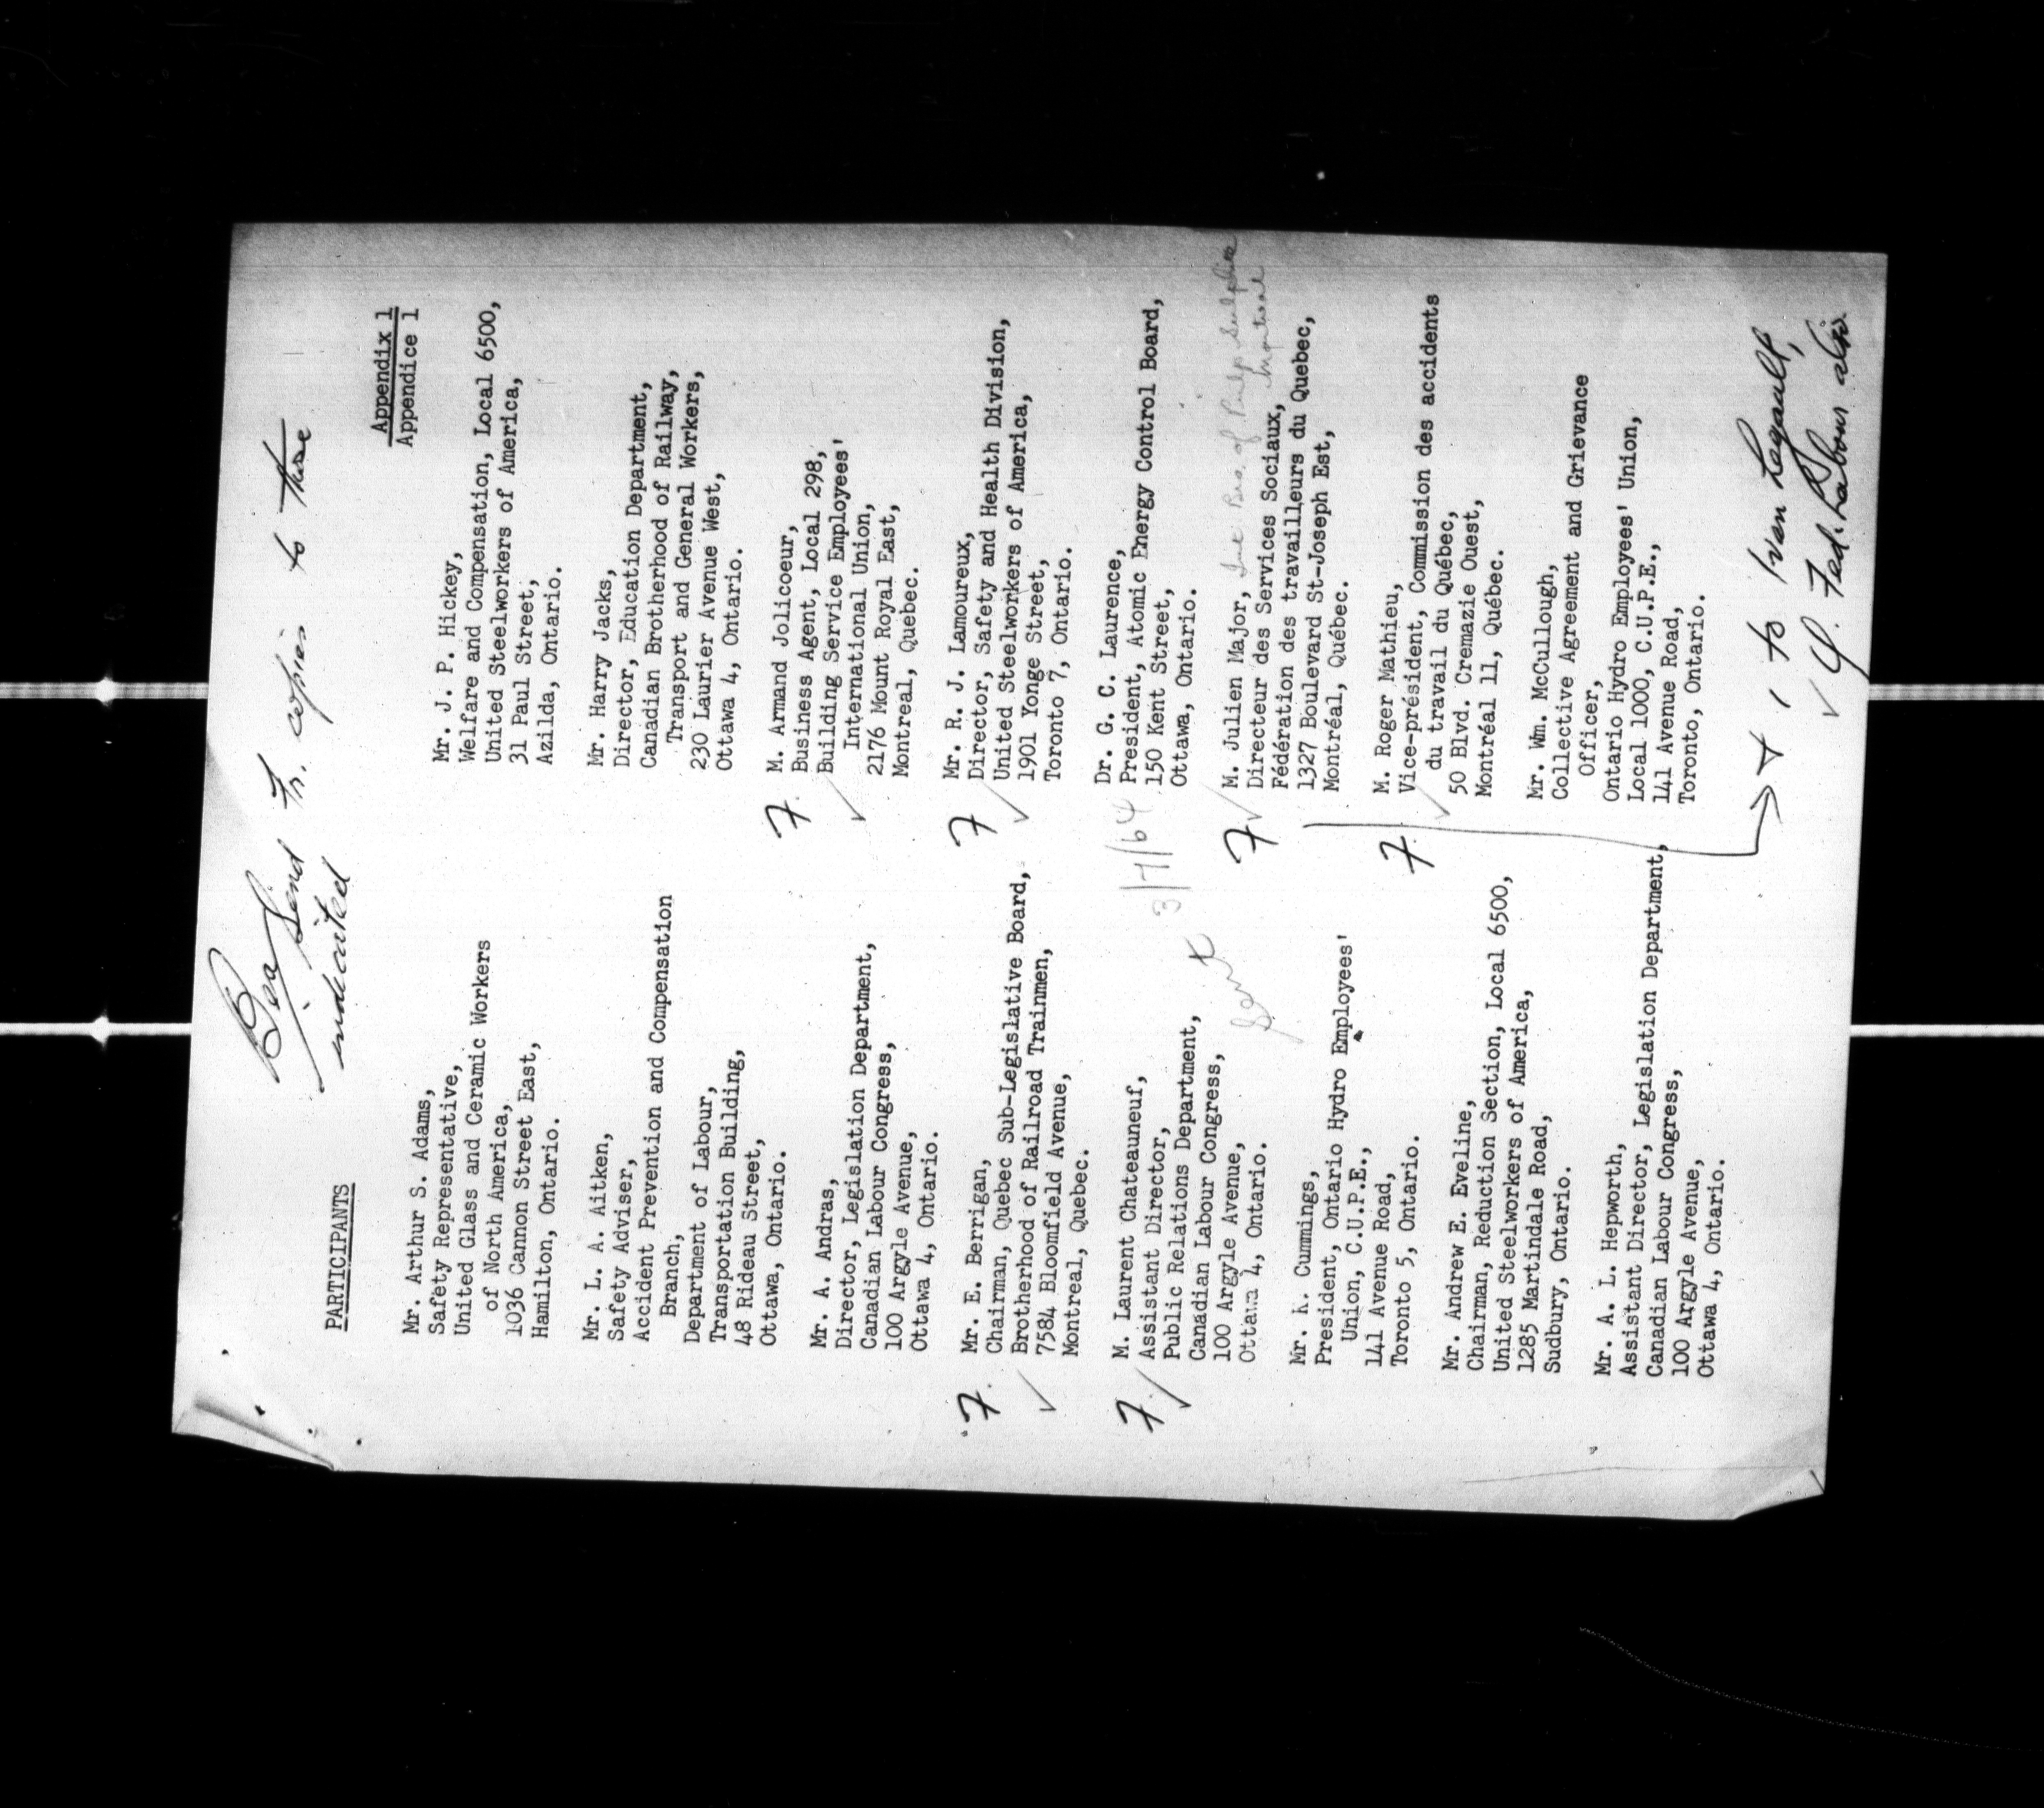 Bea
Send Fr. copies to those
indicated
Appendix 1
Appendice 1
PARTICIPANTS
Mr. Arthur S. Adams,
Safety Representative,
United Glass and Ceramic Workers
of North America,
1036 Cannon Street East,
Hamilton, Ontario.
Mr. L. A. Aitken,
Safety Adviser,
Accident Prevention and Compensation
Branch,
Department of Labour,
Transportation Building,
48 Rideau Street,
Ottawa, Ontario.
Mr. A. Andras,
Director, Legislation Department,
Canadian Labour Congress,
100 Argyle Avenue,
Ottawa 4, Ontario.
F. Mr. E. Berrigan,
Chairman, Quebec Sub-Legislative Board,
✓ Brotherhood of Railroad Trainmen,
7584 Bloomfield Avenue,
Montreal, Quebec.
F. M. Laurent Chateauneuf,
Assistant Director,
✓ Public Relations Department,
Canadian Labour Congress,
100 Argyle Avenue,
Ottawa 4, Ontario.
Sent 3/7/64
Mr. K. Cummings,
President, Ontario Hydro Employees'
Union, C.U.P.E.,
141 Avenue Road,
Toronto 5, Ontario.
Mr. Andrew E. Eveline,
Chairman, Reduction Section, Local 6500,
United Steelworkers of America,
1285 Martindale Road,
Sudbury, Ontario.
Mr. A. L. Hepworth,
Assistant Director, Legislation Department,
Canadian Labour Congress,
100 Argyle Avenue,
Ottawa 4, Ontario.
Mr. J. P. Hickey,
Welfare and Compensation, Local 6500,
United Steelworkers of America,
31 Paul Street,
Azilda, Ontario.
Mr. Harry Jacks,
Director, Education Department,
Canadian Brotherhood of Railway,
Transport and General Workers,
230 Laurier Avenue West,
Ottawa 4, Ontario.
F. M. Armand Jolicoeur,
Business Agent, Local 298,
Building Service Employees'
✓ International Union,
2176 Mount Royal East,
Montreal, Quebec.
F Mr. R. J. Lamoureux,
Director, Safety and Health Division,
United Steelworkers of America,
✓ 1901 Yonge Street,
Toronto 7, Ontario.
Dr. G. C. Laurence,
President, Atomic Energy Control Board,
150 Kent Street,
Ottawa, Ontario.
F ✓ M. Julien Major, Int Bro. of Pulp Sulphite
Montreal
Directeur des Services Sociaux,
Fédération des travailleurs du Quebec,
1327 Boulevard St-Joseph Est,
Montréal, Québec.
F. M. Roger Mathieu,
Vice-président, Commission des accidents
✓ du travail du Québec,
50 Blvd. Cremazie Ouest,
Montréal 11, Québec.
Mr. Wm. McCullough,
Collective Agreement and Grievance
Officer,
Ontario Hydro Employees' Union,
Local 1000, C.U.P.E.,
141 Avenue Road,
Toronto, Ontario.
+ 1 to Ivan Legault,
✓ Q. Fed. Labour also.